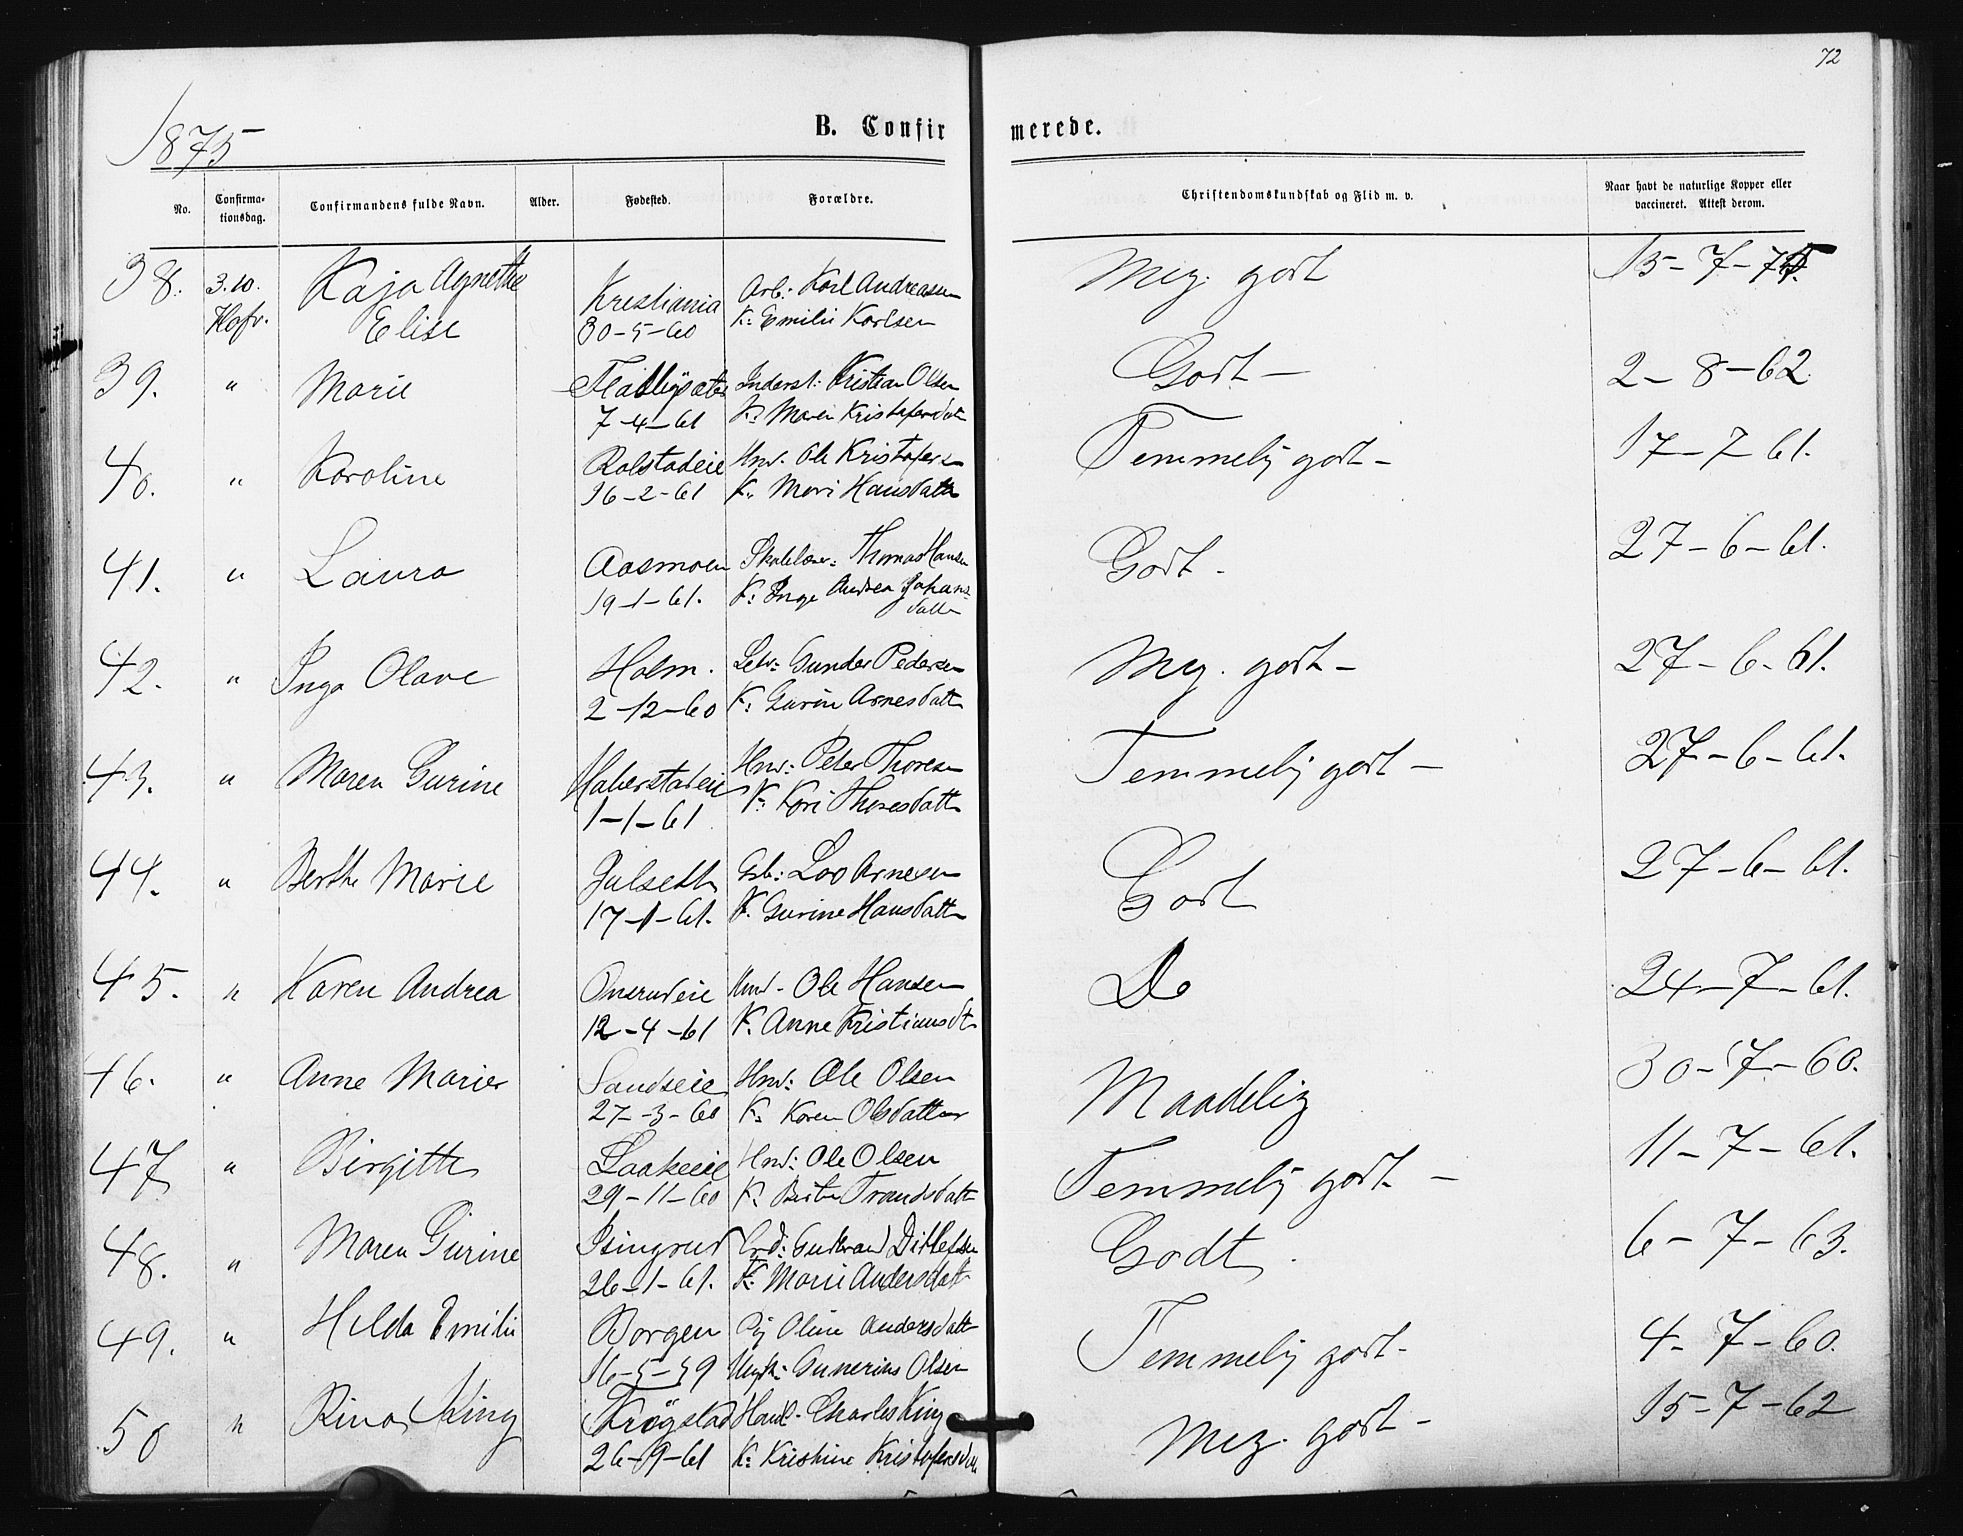 72
1875
B. Confirmerede.
No. Confirmationsdag. Confirmandens fulde Navn. Alder. Fødested. Forældre. Christendomskundskab og Flid m. v. Naar havt de naturlige Kopper eller vaccineret. Attest derom.
38. 3.10. Kaja Agnethe Kristiania Arb: Karl Andreasen Meg. godt 15-7-75.
Elise 30-5-60 K: Emilie Karlsen
39. " Marie Inderst: Kristian Olsen Godt - 2-8-62.
7-4-61 K: Maren Kristofersdatt
40. " Karoline Rolstadeie Hmd. Ole Kristofers Temmelig godt - 17-7-61.
16-2-61 K: Mari Hansdatt
41. " Laura Aasmoen Skolelær: Thomas Hansen Godt - 27-6-61.
19-1-61. K: Inge Andrea Johans
datt
42. " Inga Olave Holm. Selv: Gunder Pedersen Meg. godt - 27-6-61.
2-12-60 K: Gurine Arnesdatt
43. " Maren Gurine Haberstadeie Hmd: Peter Thoresen Temmelig godt - 27-6-61.
1-1-61 K: Kari Thoresdatt
44. " Berthe Marie Julseth Gb: Lars Arnesen Godt 27-6-61.
17-1-61. K. Gurine Hansdatt
45. " Karen Andrea Onsrudeie Hmd. Ole Hansen Do 24-7-61.
12-4-61 K. Anne Kristiansdt
46. " Anne Marie Sandseie Hmd: Ole Olsen Maadelig 30-7-60.
27-3-60 K: Karen Olsdatter
47 " Birgitte Laakeeie Hmd: Ole Olsen Temmelig godt - 11-7-61.
29-11-60 K. Berthe Trondsdatt
48. " Maren Gurine Isingrud Gudbrand Ditlefsen Godt. 6-7-63.
26-1-61. K: Marie Andersdatt
49. " Hilda Emilie Borgen Pig Oline Andersdatt Temmelig godt - 4-7-60.
16-5-59 Ungk: Gunerius Olsen
50 " Rina King Krogstad Handl. Charles King Meg. godt - 15-7-62
26-9-61 K: Kristine Kristofersdatt